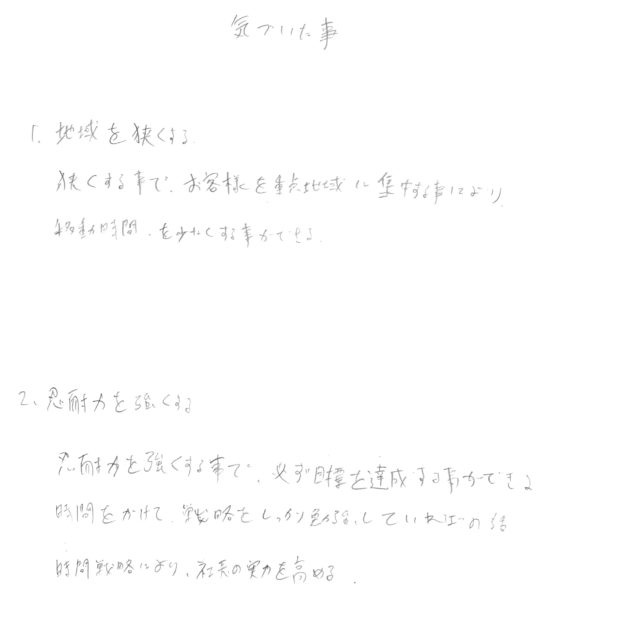 気づいた事
1. 地域を狭くする.
狭くする事で、お客様を重点地域に集中する事により
移動時間、を少なくする事ができる.
2、忍耐力を強くする
忍耐力を強くする事で、必ず目標を達成する事ができる
時間をかけて、戦略をしっかり勉強していればの話
時間戦略により、社長の実力を高める.